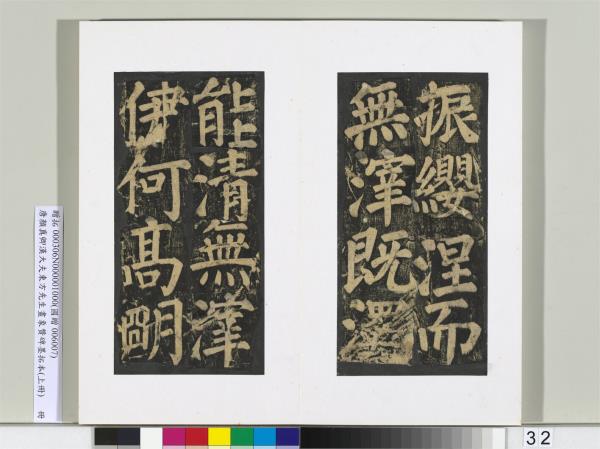 振纓涅而
無滓既濁
能清無滓
伊何高明
贈拓 000306N000001000(國贈 006007)
唐顏真卿漢大夫東方先生畫象贊碑墨拓本(上冊) 冊
32